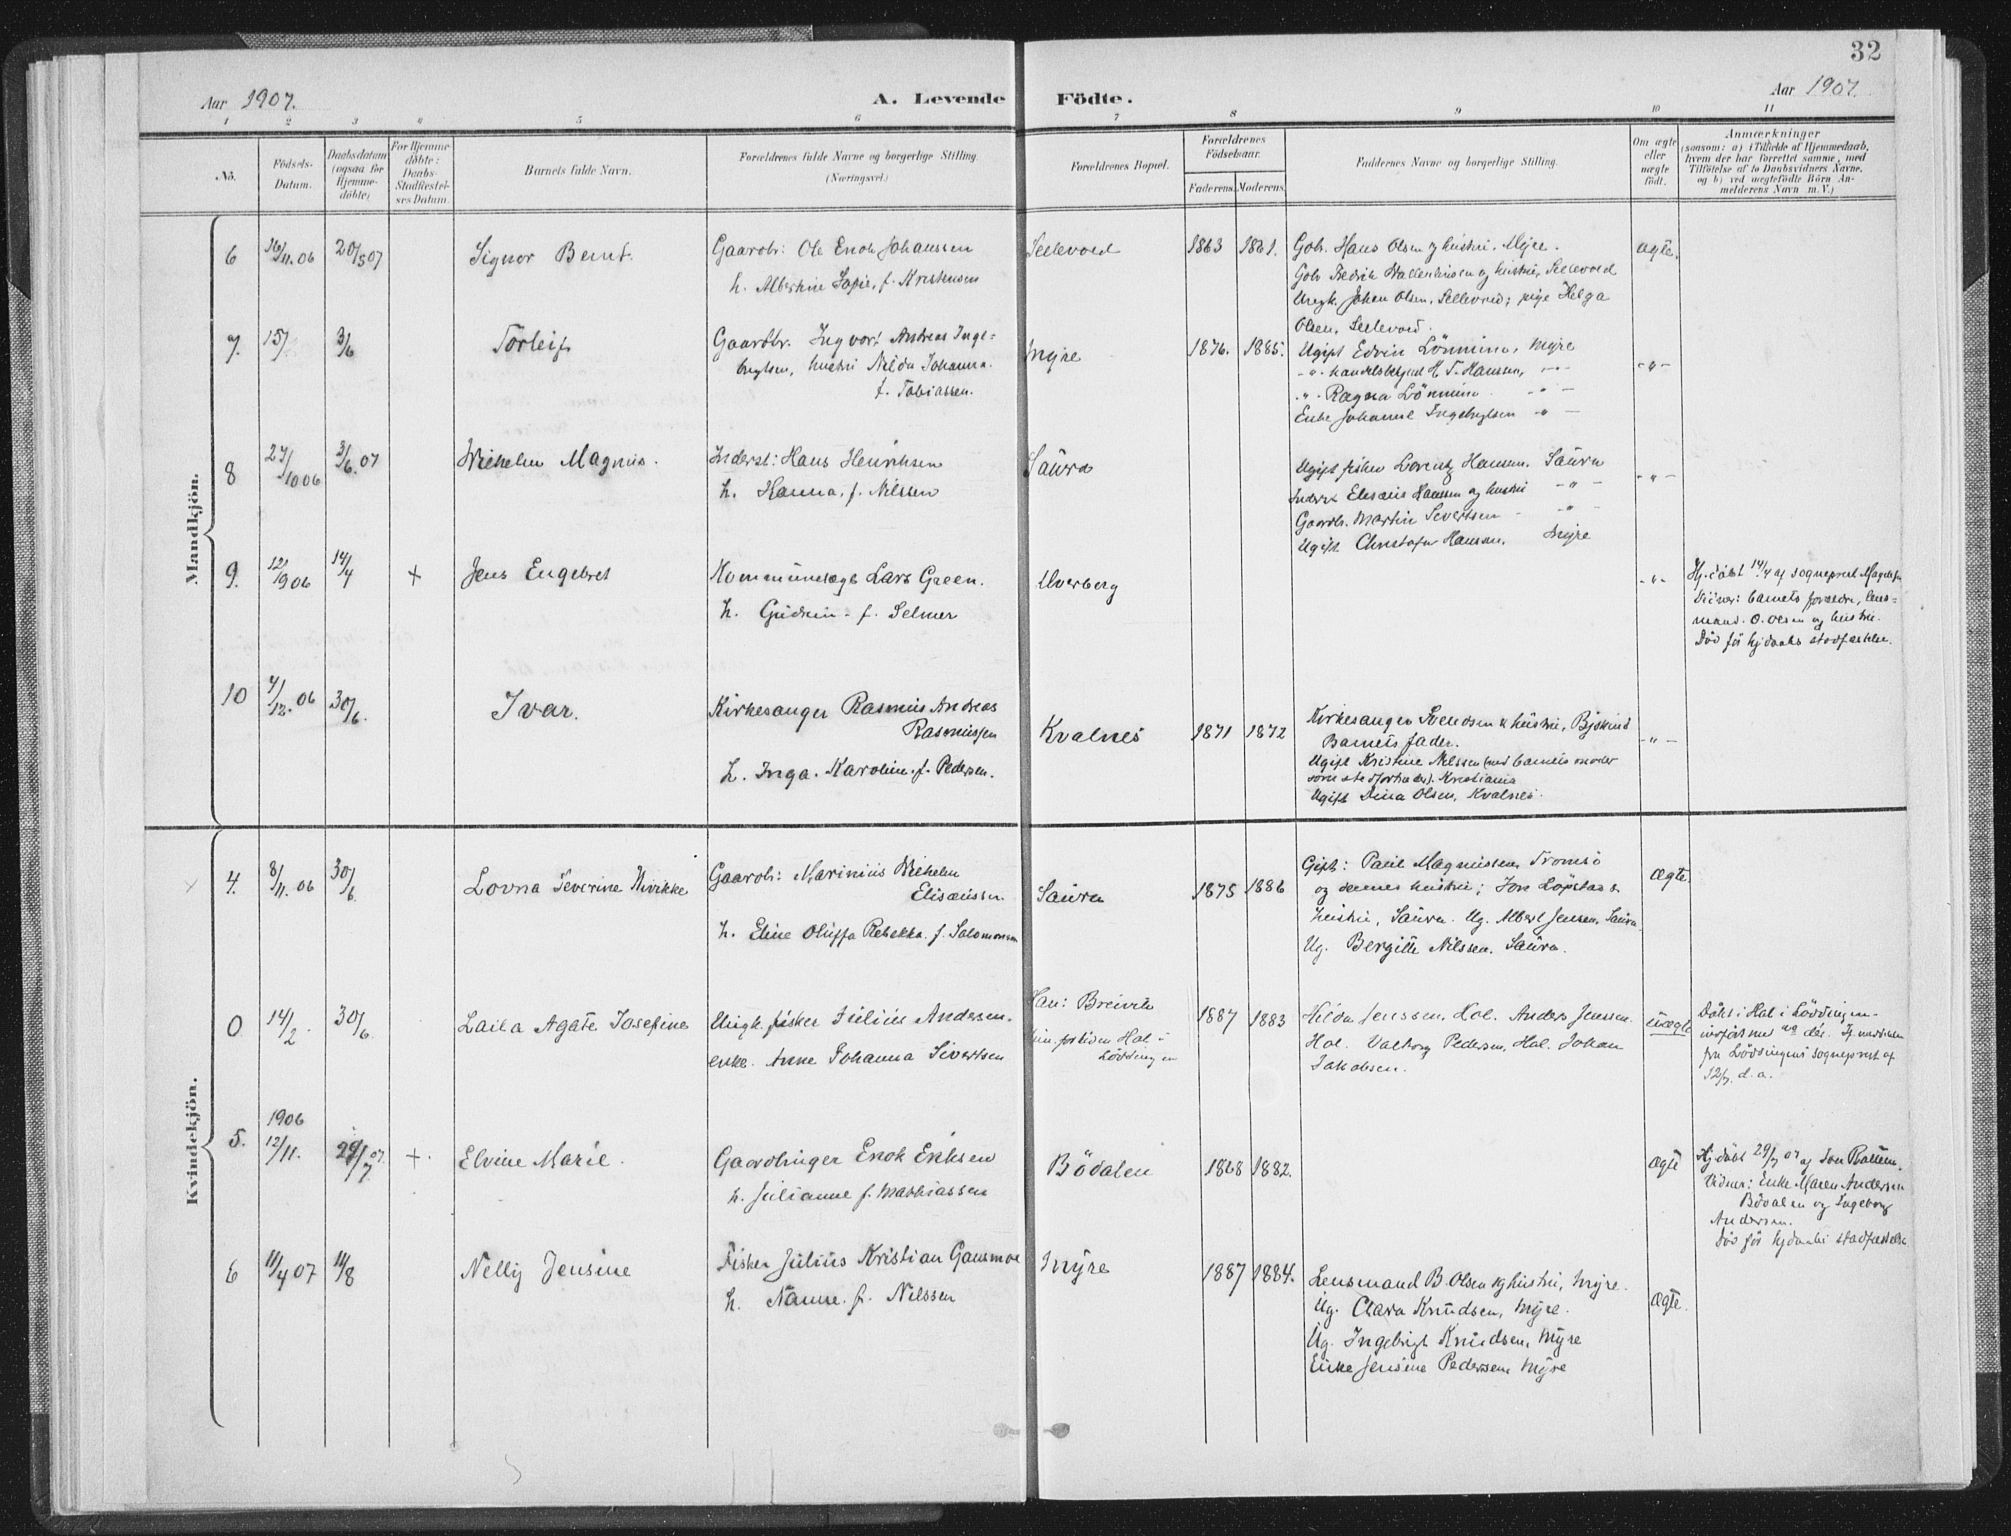 32
Aar 1907.
A. Levende
Födte.
Aar 1907.
1 2 3 4 5 6 7 8 9 10 11
No.
Födsels-
Datum.
Daabsdatum
(ogsaa for
Hjemme-
döbte)
For Hjemme-
döbte:
Daabs-
Stadfæstel-
ses Datum.
Barnets fulde Navn.
Forældrenes fulde Navne og borgerlige Stilling.
(Næringsvei.)
Forældrenes Bopæl.
Forældrenes
Födselsaar.
Faderens. Moderens.
Faddernes Navne og borgerlige Stilling.
Om ægte
eller
uægte
födt.
Anmærkninger
(saasom: a) i Tilfælde af Hjemmedaab,
hvem der har forrettet samme, med
Tilföielse af to Daabsvidners Navne,
og b) ved uægtefödte Börn An-
melderens Navn m. V.)
Mandkjön.
6 16/11.06 20/5 07 Signor Bernt.
Gaardbr: Ole Enok Johanssen
h. Albertine Sofie, f. Kristensen
Sellevold 1863 1861.
Gbr. Hans Olsen og hustri. Myre.
Gbr Fredrik og hustri, Sellevold
Ungk. Johan Olsen, Sellevold; pige Helga
Olsen, Sellevold.
ægte.
7. 15/ 3/6 Torleif
Gaardbr. Ingvart Andreas Inge-
brigtsen, hustri Nilda Johanna
f. Tobiassen.
Myre 1876. 1885.
Ugift Edvin Lönning, Myre
-"- handelsbetjent H. T. Hanssen, -"-
-"- Ragna Lönning -"-
Enke Johanne Ingebrigtsen -"-
-"-
8 27/10 06 3/6.07 Wilhelm Magnus.
Inderst: Hans Henriksen
h. Hanna, f. Nilssen
Saura
Ugift fisker Lorentz Hansen. Saura
Inderst Elisæus Hanssen og hustri -"-
Gaardb. Martin Severtsen -"-
Ugift Christofer Hansen. Myre
-"-
9. 12/9 06 14/4 + Jens Engebret
Kommunelæge Lars Green.
h. Gudrun - f. Selmer
Alverberg
-"-
Hj.döbt 14/4 af sogneprest
Vidner: barnets forældre, lens-
mand. O. Olsen og hustri.
Död för hjdaabs stadfæstelse.
10 4/12.06 30/6. Ivar.
Kirkesanger Rasmus Andreas
Rasmussen
h. Inga. Karoline. f. Pedersen.
Kvalnes 1871 1872
Kirkesanger Svendsen & hustri, Bjerkvid
Barnets fader.
Ugift Kristine Nilssen (med barnets moder
som stedfortræder). Kristiania
Ugift Dina Olsen, Kvalnes.
-"-
Kvindekjön.
4. 8/11.06 30/6 Lovna Severine Hirikke
Gaardb: Marinius Wilhelm
Elisæussen
h. Eline Oluffa Rebekka. f. Salomonsen
Saura 1875 1886
Gift: Paul Magnussen Tromsö
og dennes hustri; Jon Löpstad &
hustri, Saura. Ug. Albert Jensen, Saura.
Ug. Bergitte Nilssen. Saura.
Ægte.
0 14/2. 30/6 Laila Agate Josefine
Ungk. fisker Julius Andersen.
enke. Anne Johanna Sivertsen
Han: Breivik
hun. fortiden Hol i
Lödingen
1887 1883
Hilda Jenssen, Hol. Anders Jenssen.
Hol. Valborg Pedersen, Hol. Johan
Jakobsen.
uægte
Döbt i Hol i Löddingen
indfört med no der. Ifj. meddelelse
fra Löddingens sogneprest af
12/7. d. a.
5. 1906
12/11. 29/7 07 + Elvine Marie.
Gaardbruger Enok Eriksen
h. Julianne f. Mathiassen
Bödalen 1868 1882.
Ægte
Hj.döbt 29/7 07 af
Vidner: Enke Maren Andersen
Bödalen og Ingeborg
Andersen.
Död för hjdaabs stadfæstelse
6 11/4 07 11/8 Nelly Jensine
Fisker Julius Kristian Gausmoe
h. Nanne. f. Nilssen
Myre 1887 1884.
Lensmand B. Olsen og hustri, Myre.
Ug. Clara Knudsen, Myre.
Ug. Ingebrigt Knudsen, Myre
Enke Jensine Pedersen Myre
Ægte.